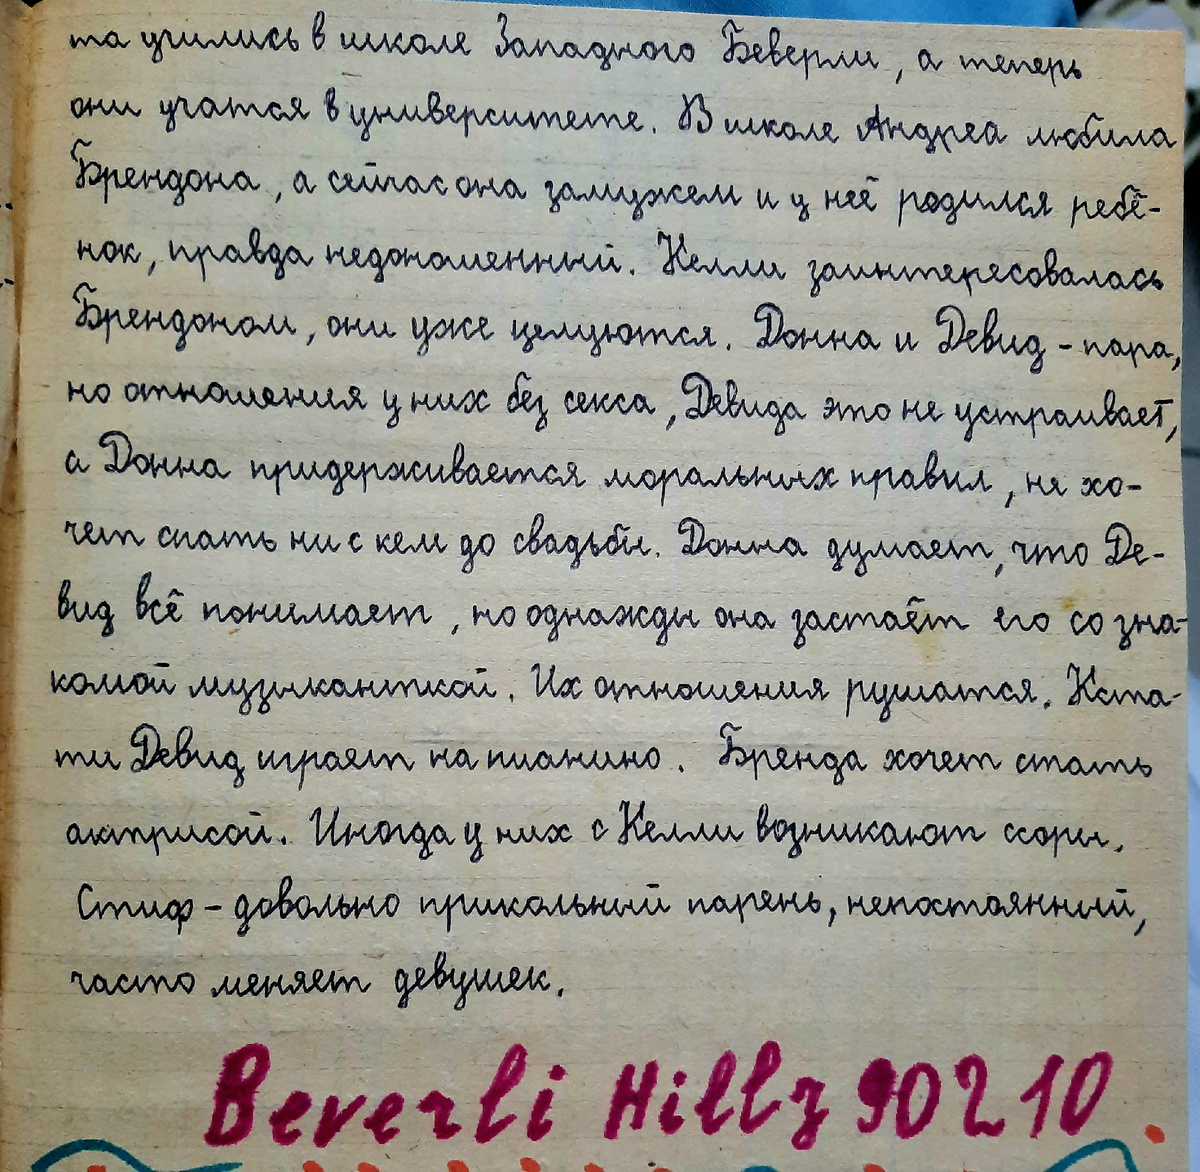 та учились в школе Западного Беверли, а теперь
они учатся в университете. В школе Андреа любила
Брендона, а сейчас она замужем и у неё родился ребё-
нок, правда недоношенный. Келли заинтересовалась
Брендоном, они уже целуются. Донна и Девид - пара,
но отношения у них без секса, Девида это не устраивает,
а Донна придерживается моральных правил, не хо-
чет спать ни с кем до свадьбы. Донна думает, что Де-
вид всё понимает, но однажды она застаёт его со зна-
комой музыканткой. Их отношения рушатся. Кста-
ти Девид играет на пианино. Бренда хочет стать
актрисой. Иногда у них с Келли возникают ссоры.
Стиф - довольно прикольный парень, непостоянный,
часто меняет девушек.
Beverli Hillz 90210